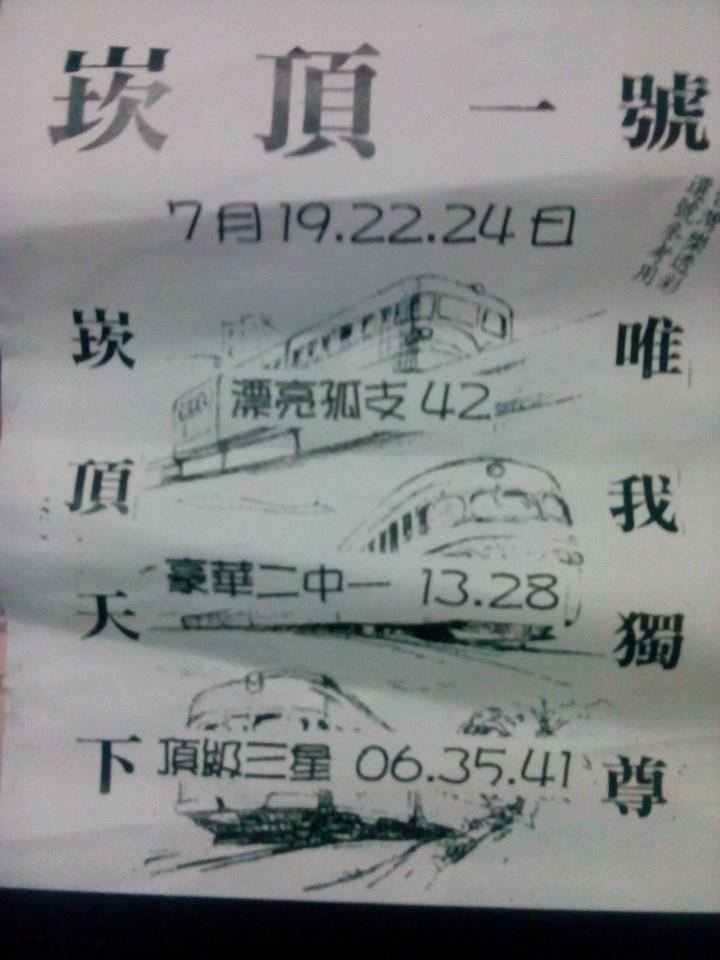 崁頂一號
7月19.22.24日
台灣樂透彩
選號參考用
崁頂天下
唯我獨尊
漂亮孤支 42
豪華二中一 13.28
頂級三星 06.35.41